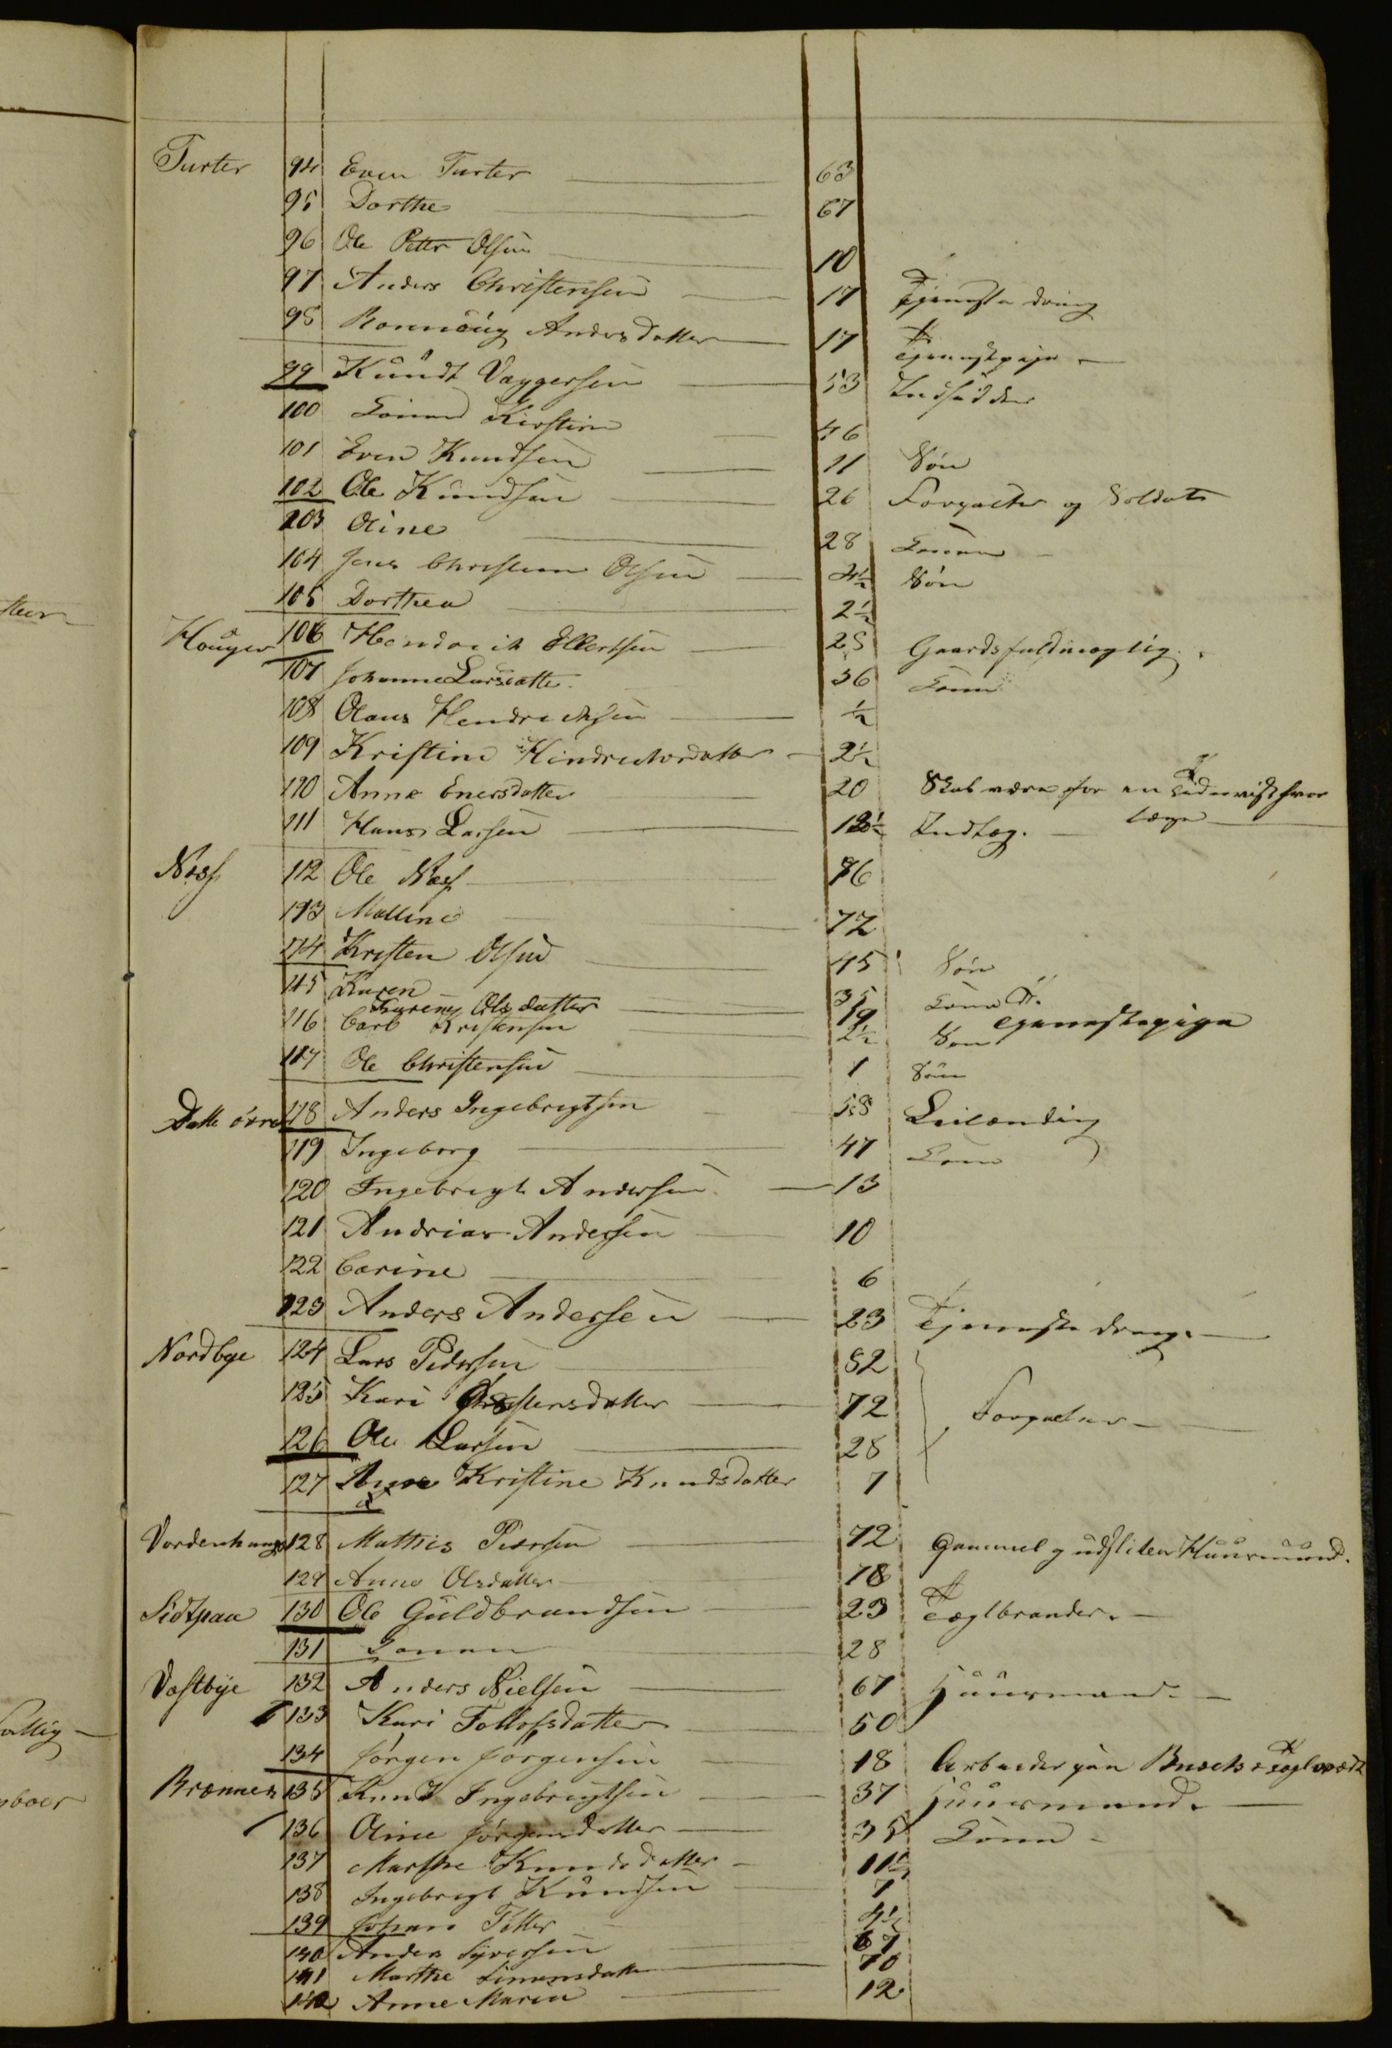 Turter 94 Even Turter 63
95 Dorthe 67
96 Ole Petter Olsen 10
97 Anders Christensen 17 Tjenestedreng
98 Andersdatter 17 Tjenestepige
99 Knudt Vaggersen 53 Indsidder
100 Konen Kirstin 46
101 Even Knudsen 11 Søn
102 Ole Knudsen 26 Forpagter og Soldat
103 Oline 28 Konen
104 Jens Christian Olsen 4½ Søn
105 Dorthea 2½
Houger 106 Hendrich Ellertsen 25 Gaardsfuldmægtig.
107 Johanne Larsdatter 36 Kone
108 Olaus Hendrichsen ½
109 Kristine Hendrichsdatter 2½
110 Anne Enersdatter 20 Skal være for en
111 Hans Larsen Indlæg.
Næss 112 Ole Næss 76
113 Malline 72
114 Kristen Olsen 45 Søn
115 Karen 35 Kone
Karene Olsdatter 19 Tjenestepige
116 Carl Kristensen 2½ Søn
117 Ole Christensen 1 Søn
Datte øvre 118 Anders Ingebrigtsen 58 Leilænding
119 Ingeborg 47 Kone
120 Ingebrigt Andersen 13
121 Andrias Andersen 10
122 Carine 6
123 Anders Andersen 23 Tjenestedreng.
Nordbye 124 Lars Pedersen 82
125 Kari Christensdatter 72 Forpagter
126 Ole Larsen 28
127 Anne Kristine Knudsdatter 7
Vordenhaug 128 Mathis Pedersen 72 Gammel og udsliten Huusmand.
129 Anne Olsdatter 78
Sidtpaa 130 Ole Guldbrandsen 23 Tæglbrander.
131 Konen 28
Vestbye 132 Anders Nielsen 67 Huusmand.
133 Kari Tollofsdatter 50
134 Jørgen Jørgensen 18 Arbeider paa Buschs Taglværk
Brænnen 135 Knud Ingebrigtsen 37 Huusmand.
136 Oline Jørgensdatter 35 Kone
137 Marthe Knudsdatter 11½
138 Ingebrigt Knudsen 7
139 Johan Petter 4½
140 Anders Syversen 67
141 Marthe Simensdatter 70
142 Anne Maren 12